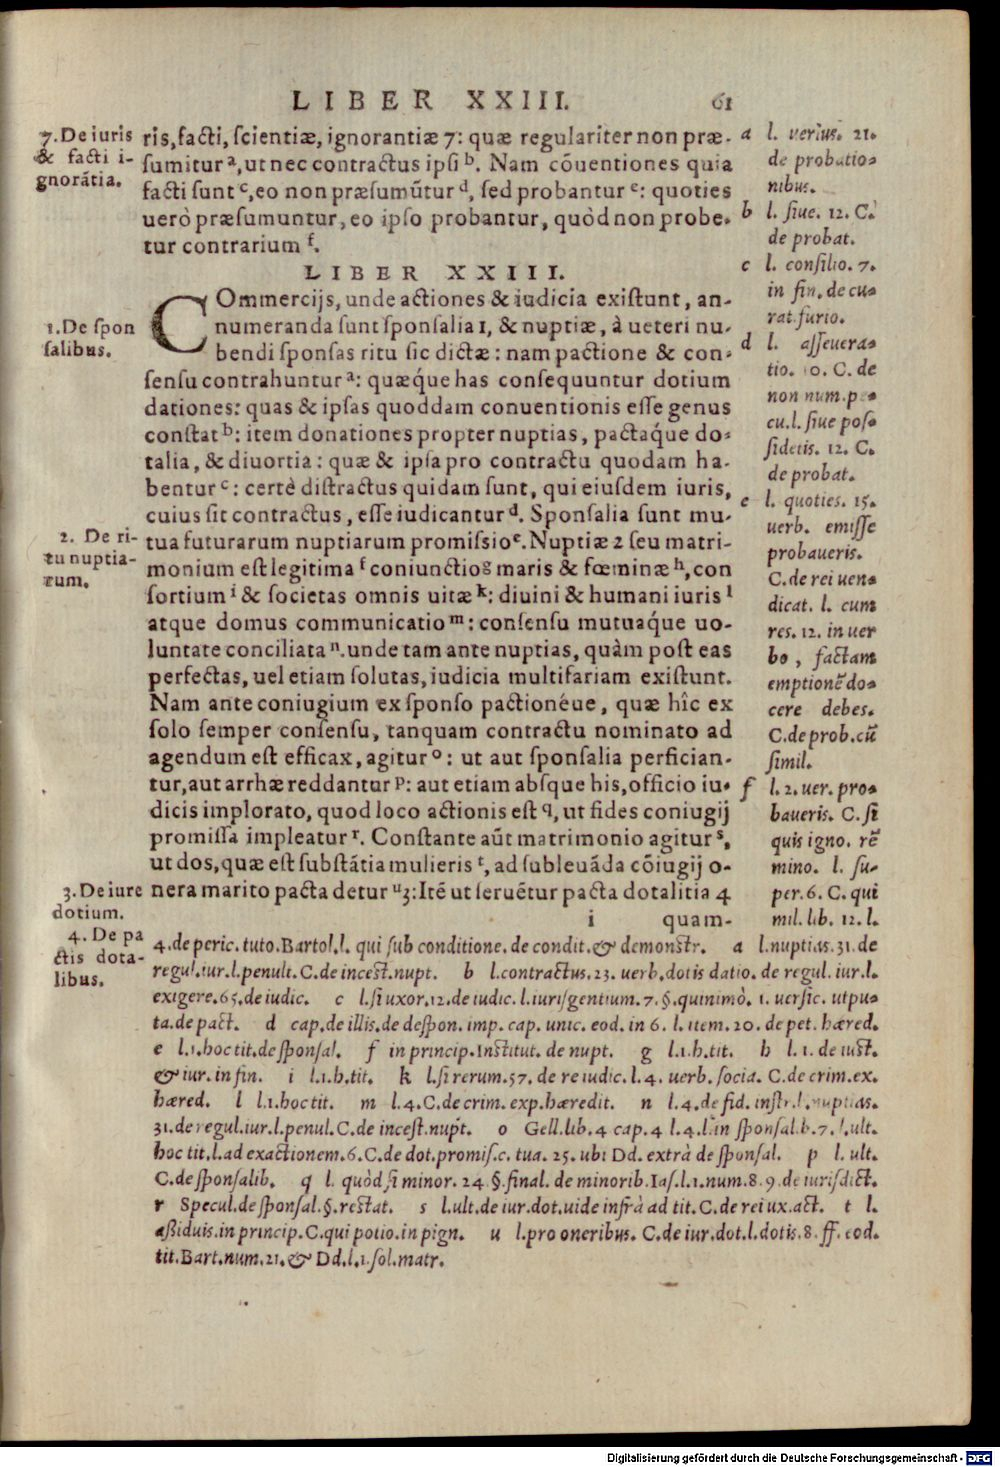 LIBER XXIII. 61
7. De iuris
& facti i-
gnorātia.
ris, facti, scientiæ, ignorantiæ 7: quæ regulariter non præ-
sumitur a, ut nec contractus ipsi b. Nam cōuentiones quia
facti sunt c, eo non præsumūtur d, sed probantur e: quoties
uerò præsumuntur, eo ipso probantur, quòd non probe-
tur contrarium f.
LIBER XXIII.
1. De spon
salibus.
COmmercijs, unde actiones & iudicia existunt, an-
numeranda sunt sponsalia 1, & nuptiæ, à ueteri nu-
bendi sponsas ritu sic dictæ: nam pactione & con-
sensu contrahuntur a: quæq́ue has consequuntur dotium
dationes: quas & ipsas quoddam conuentionis esse genus
constat b: item donationes propter nuptias, pactaq́ue do-
talia, & diuortia: quæ & ipsa pro contractu quodam ha-
bentur c: certè distractus quidam sunt, qui eiusdem iuris,
cuius sit contractus, esse iudicantur d. Sponsalia sunt mu-
2. De ri-
tu nuptia-
rum.
tua futurarum nuptiarum promissio e. Nuptiæ 2 seu matri-
monium est legitima f coniunctio g maris & fœminæ h, con
sortium i & societas omnis uitæ k: diuini & humani iuris l
atque domus communicatio m: consensu mutuaq́ue uo-
luntate conciliata n. unde tam ante nuptias, quàm post eas
perfectas, uel etiam solutas, iudicia multifariam existunt.
Nam ante coniugium ex sponso pactionéue, quæ hîc ex
solo semper consensu, tanquam contractu nominato ad
agendum est efficax, agitur o: ut aut sponsalia perfician-
tur, aut arrhæ reddantur p: aut etiam absque his, officio iu-
dicis implorato, quod loco actionis est q, ut fides coniugij
promissa impleatur r. Constante aūt matrimonio agitur s,
ut dos, quæ est substātia mulieris t, ad subleuāda cōiugij o-
3. De iure
dotium.
nera marito pacta detur u 3: Itē ut seruētur pacta dotalitia 4
i quam-
a l. verius. 21.
de probatio-
nibus.
b l. siue. 12. C.
de probat.
c l. consilio. 7.
in fin. de cu-
rat. furio.
d l. asseuera-
tio. 0. C. de
non num. pe-
cu. l. siue pos-
sidetis. 12. C.
de probat.
e l. quoties. 15.
uerb. emisse
probaueris.
C. de rei uen-
dicat. l. cum
res. 12. in uer
bo, factam
emptionē do-
cere debes.
C. de prob. cū
simil.
f l. 2. uer. pro-
baueris. C. si
quis igno. rē
mino. l. su-
per. 6. C. qui
mil. lib. 12. l.
4. De pa
ctis dota-
libus.
4. de peric. tuto. Bartol. l. qui sub conditione. de condit. & demonstr. a l. nuptias. 31. de
regul. iur. l. penult. C. de incest. nupt. b l. contractus. 23. uerb. dotis datio. de regul. iur. l.
exigere. 65. de iudic. c l. si uxor. 12. de iudic. l. iurisgentium. 7. §. quinimò. 1. uersic. utpu-
ta. de pact. d cap. de illis. de despon. imp. cap. unic. eod. in 6. l. item. 20. de pet. hæred.
e l. 1. hoc tit. de sponsal. f in princip. Institut. de nupt. g l. 1. h. tit. h l. 1. de iust.
& iur. in fin. i l. 1. h. tit. k l. si rerum. 57. de re iudic. l. 4. uerb. socia. C. de crim. ex.
hæred. l l. 1. hoc tit. m l. 4. C. de crim. exp. hæredit. n l. 4. de fid. instr. l. nuptias.
31. de regul. iur. l. penul. C. de incest. nupt. o Gell. lib. 4 cap. 4 l. 4. l. in sponsal. h. 7. l. ult.
hoc tit. l. ad exactionem. 6. C. de dot. promis. c. tua. 25. ubi Dd. extrà de sponsal. p l. ult.
C. de sponsalib. q l. quòd si minor. 24. §. final. de minorib. Ias. l. 1. num. 8. 9. de iurisdict.
r Specul. de sponsal. §. restat. s l. ult. de iur. dot. uide infrà ad tit. C. de rei ux. act. t l.
assiduis. in princip. C. qui potio. in pign. u l. pro oneribus. C. de iur. dot. l. dotis. 8. ff. eod.
tit. Bart. num. 21. & Dd. l. 1. sol. matr.
Digitalisierung gefördert durch die Deutsche Forschungsgemeinschaft - DFG